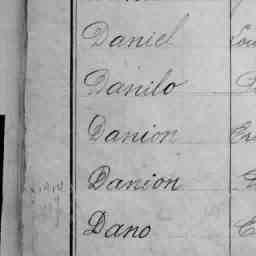 Daniel
Danilo
Danion
Danion
Dano